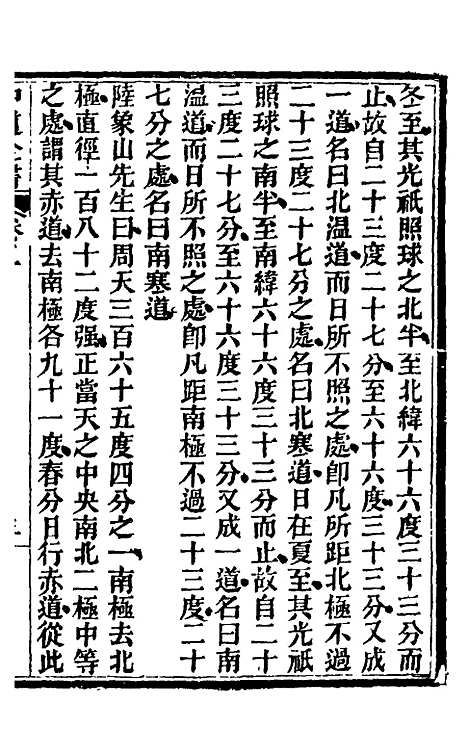 冬至其光祇照球之北半至北緯六十六度三十三分而
止故自二十三度二十七分至六十六度三十三分又成
一道名曰北溫道而日所不照之處卽凡所距北極不過
二十三度二十七分之處名曰北寒道日在夏至其光祇
照球之南半至南緯六十六度三十三分而止故自二十
三度二十七分至六十六度三十三分又成一道名曰南
溫道而日所不照之處卽凡距南極不過二十三度二十
七分之處名曰南寒道
陸象山先生曰周天三百六十五度四分之一南極去北
極直徑一百八十二度强正當天之中央南北二極中等
之處謂其赤道去南極各九十一度春分日行赤道從此